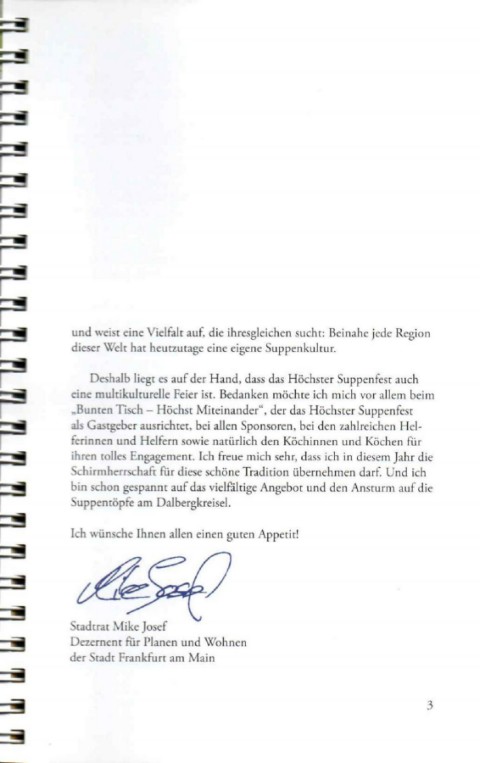 und weist eine Vielfalt auf, die ihresgleichen sucht: Beinahe jede Region
dieser Welt hat heutzutage eine eigene Suppenkultur.
Deshalb liegt es auf der Hand, dass das Höchster Suppenfest auch
eine multikulturelle Feier ist. Bedanken möchte ich mich vor allem beim
„Bunten Tisch – Höchst Miteinander“, der das Höchster Suppenfest
als Gastgeber ausrichtet, bei allen Sponsoren, bei den zahlreichen Hel-
ferinnen und Helfern sowie natürlich den Köchinnen und Köchen für
ihren tolles Engagement. Ich freue mich sehr, dass ich in diesem Jahr die
Schirmherrschaft für diese schöne Tradition übernehmen darf. Und ich
bin schon gespannt auf das vielfältige Angebot und den Ansturm auf die
Suppentöpfe am Dalbergkreisel.
Ich wünsche Ihnen allen einen guten Appetit!
Mike Josef
Stadtrat Mike Josef
Dezernent für Planen und Wohnen
der Stadt Frankfurt am Main
3